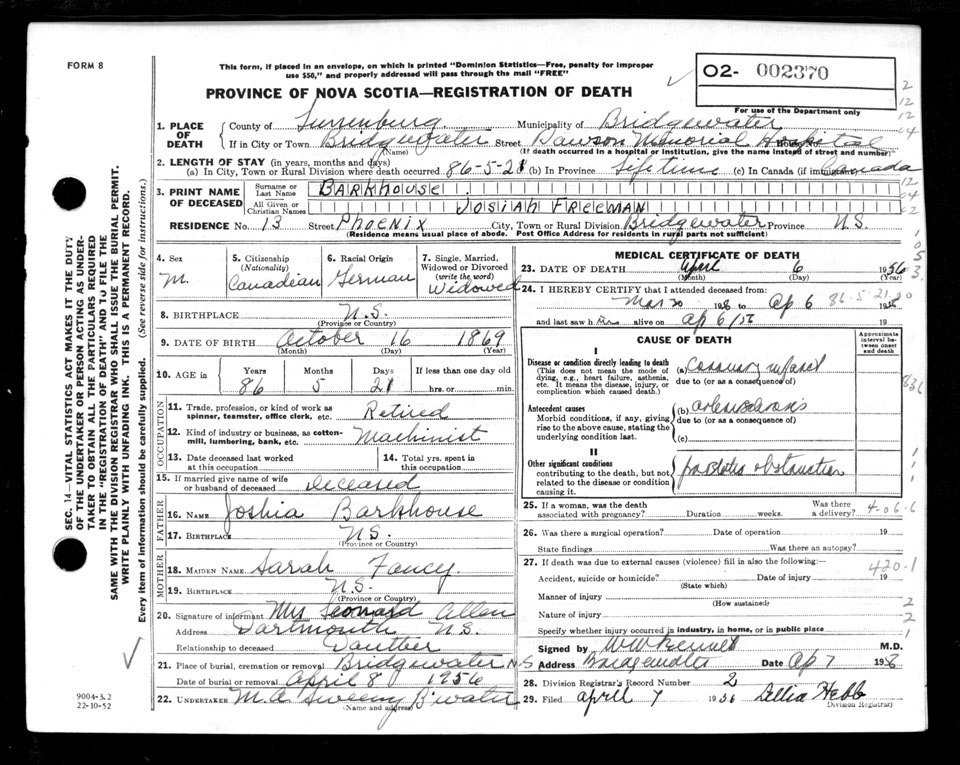 FORM 8
This form, if placed in an envelope, on which is printed "Dominion Statistics—Free, penalty for improper
use $50," and properly addressed will pass through the mail "FREE"
O2- 002370
For use of the Department only
PROVINCE OF NOVA SCOTIA—REGISTRATION OF DEATH
1. PLACE OF DEATH County of Lunenburg Municipality of Bridgewater
If in City or Town Bridgewater Street Dawson Memorial Hospital
(Name) (If death occurred in a hospital or institution, give the name instead of street and number)
2. LENGTH OF STAY (in years, months and days)
(a) In City, Town or Rural Division where death occurred 86-5-21 (b) In Province Lifetime (c) In Canada (if immigrant) Canada
3. PRINT NAME OF DECEASED Surname or Last Name BARKHOUSE
All Given or Christian Names JOSIAH FREEMAN
RESIDENCE No. 13 Street Phoenix City, Town or Rural Division Bridgewater Province N.S.
(Residence means usual place of abode. Post Office Address for residents in rural parts not sufficient)
4. Sex M.
5. Citizenship (Nationality) Canadian
6. Racial Origin German
7. Single, Married, Widowed or Divorced (write the word) Widowed
8. BIRTHPLACE N.S.
(Province or Country)
9. DATE OF BIRTH October 16 1869
(Month) (Day) (Year)
10. AGE in Years 86 Months 5 Days 21 If less than one day hrs. or min.
OCCUPATION
11. Trade, profession, or kind of work as spinner, teamster, office clerk, etc. Retired
12. Kind of industry or business, as cotton-mill, lumbering, bank, etc. Machinist
13. Date deceased last worked at this occupation
14. Total yrs. spent in this occupation
15. If married give name of wife or husband of deceased Deceased
FATHER
16. NAME Joshia Barkhouse
17. BIRTHPLACE N.S.
(Province or Country)
MOTHER
18. MAIDEN NAME Sarah Fancy
19. BIRTHPLACE N.S.
(Province or Country)
20. Signature of informant Mrs Leonard Allen
Address Dartmouth N.S.
Relationship to deceased
21. Place of burial, cremation or removal Bridgewater N.S
Date of burial or removal April 8 1956
22. UNDERTAKER M.A. Sweeny B'water
(Name and address)
MEDICAL CERTIFICATE OF DEATH
23. DATE OF DEATH April 6 1956
(Month) (Day) (Year)
24. I HEREBY CERTIFY that I attended deceased from:
Mar 20 to Ap 6 1956
86.5.21.20
and last saw h im alive on Ap 6/56 19
CAUSE OF DEATH
Approximate interval between onset and death
I
Disease or condition directly leading to death
(This does not mean the mode of dying, e.g., heart failure, asthenia, etc. It means the disease, injury, or complication which caused death.)
(a) Coronary infarct
due to (or as a consequence of)
Antecedent causes
Morbid conditions, if any, giving rise to the above cause, stating the underlying condition last.
(b) arteriosclerosis
due to (or as a consequence of)
(c)
II
Other significant conditions
contributing to the death, but not related to the disease or condition causing it.
prostatic obstruction
25. If a woman, was the death associated with pregnancy? Duration weeks. Was there a delivery?
26. Was there a surgical operation? Date of operation 19
State findings Was there an autopsy?
27. If death was due to external causes (violence) fill in also the following:—
420.1
Accident, suicide or homicide? Date of injury 19
(State which)
Manner of injury
(How sustained)
Nature of injury
Specify whether injury occurred in industry, in home, or in public place
Signed by M.D.
Address Bridgewater Date Ap 7 1956
28. Division Registrar's Record Number 2
29. Filed April 7 1956 Hebb
(Division Registrar)
SEC. 14—VITAL STATISTICS ACT MAKES IT THE DUTY
OF THE UNDERTAKER OR PERSON ACTING AS UNDER-
TAKER TO OBTAIN ALL THE PARTICULARS REQUIRED
IN THE "REGISTRATION OF DEATH" AND TO FILE THE
SAME WITH THE DIVISION REGISTRAR WHO SHALL ISSUE THE BURIAL PERMIT.
WRITE PLAINLY WITH UNFADING INK. THIS IS A PERMANENT RECORD.
Every item of information should be carefully supplied. (See reverse side for instructions.)
9004-3.2
22-10-52